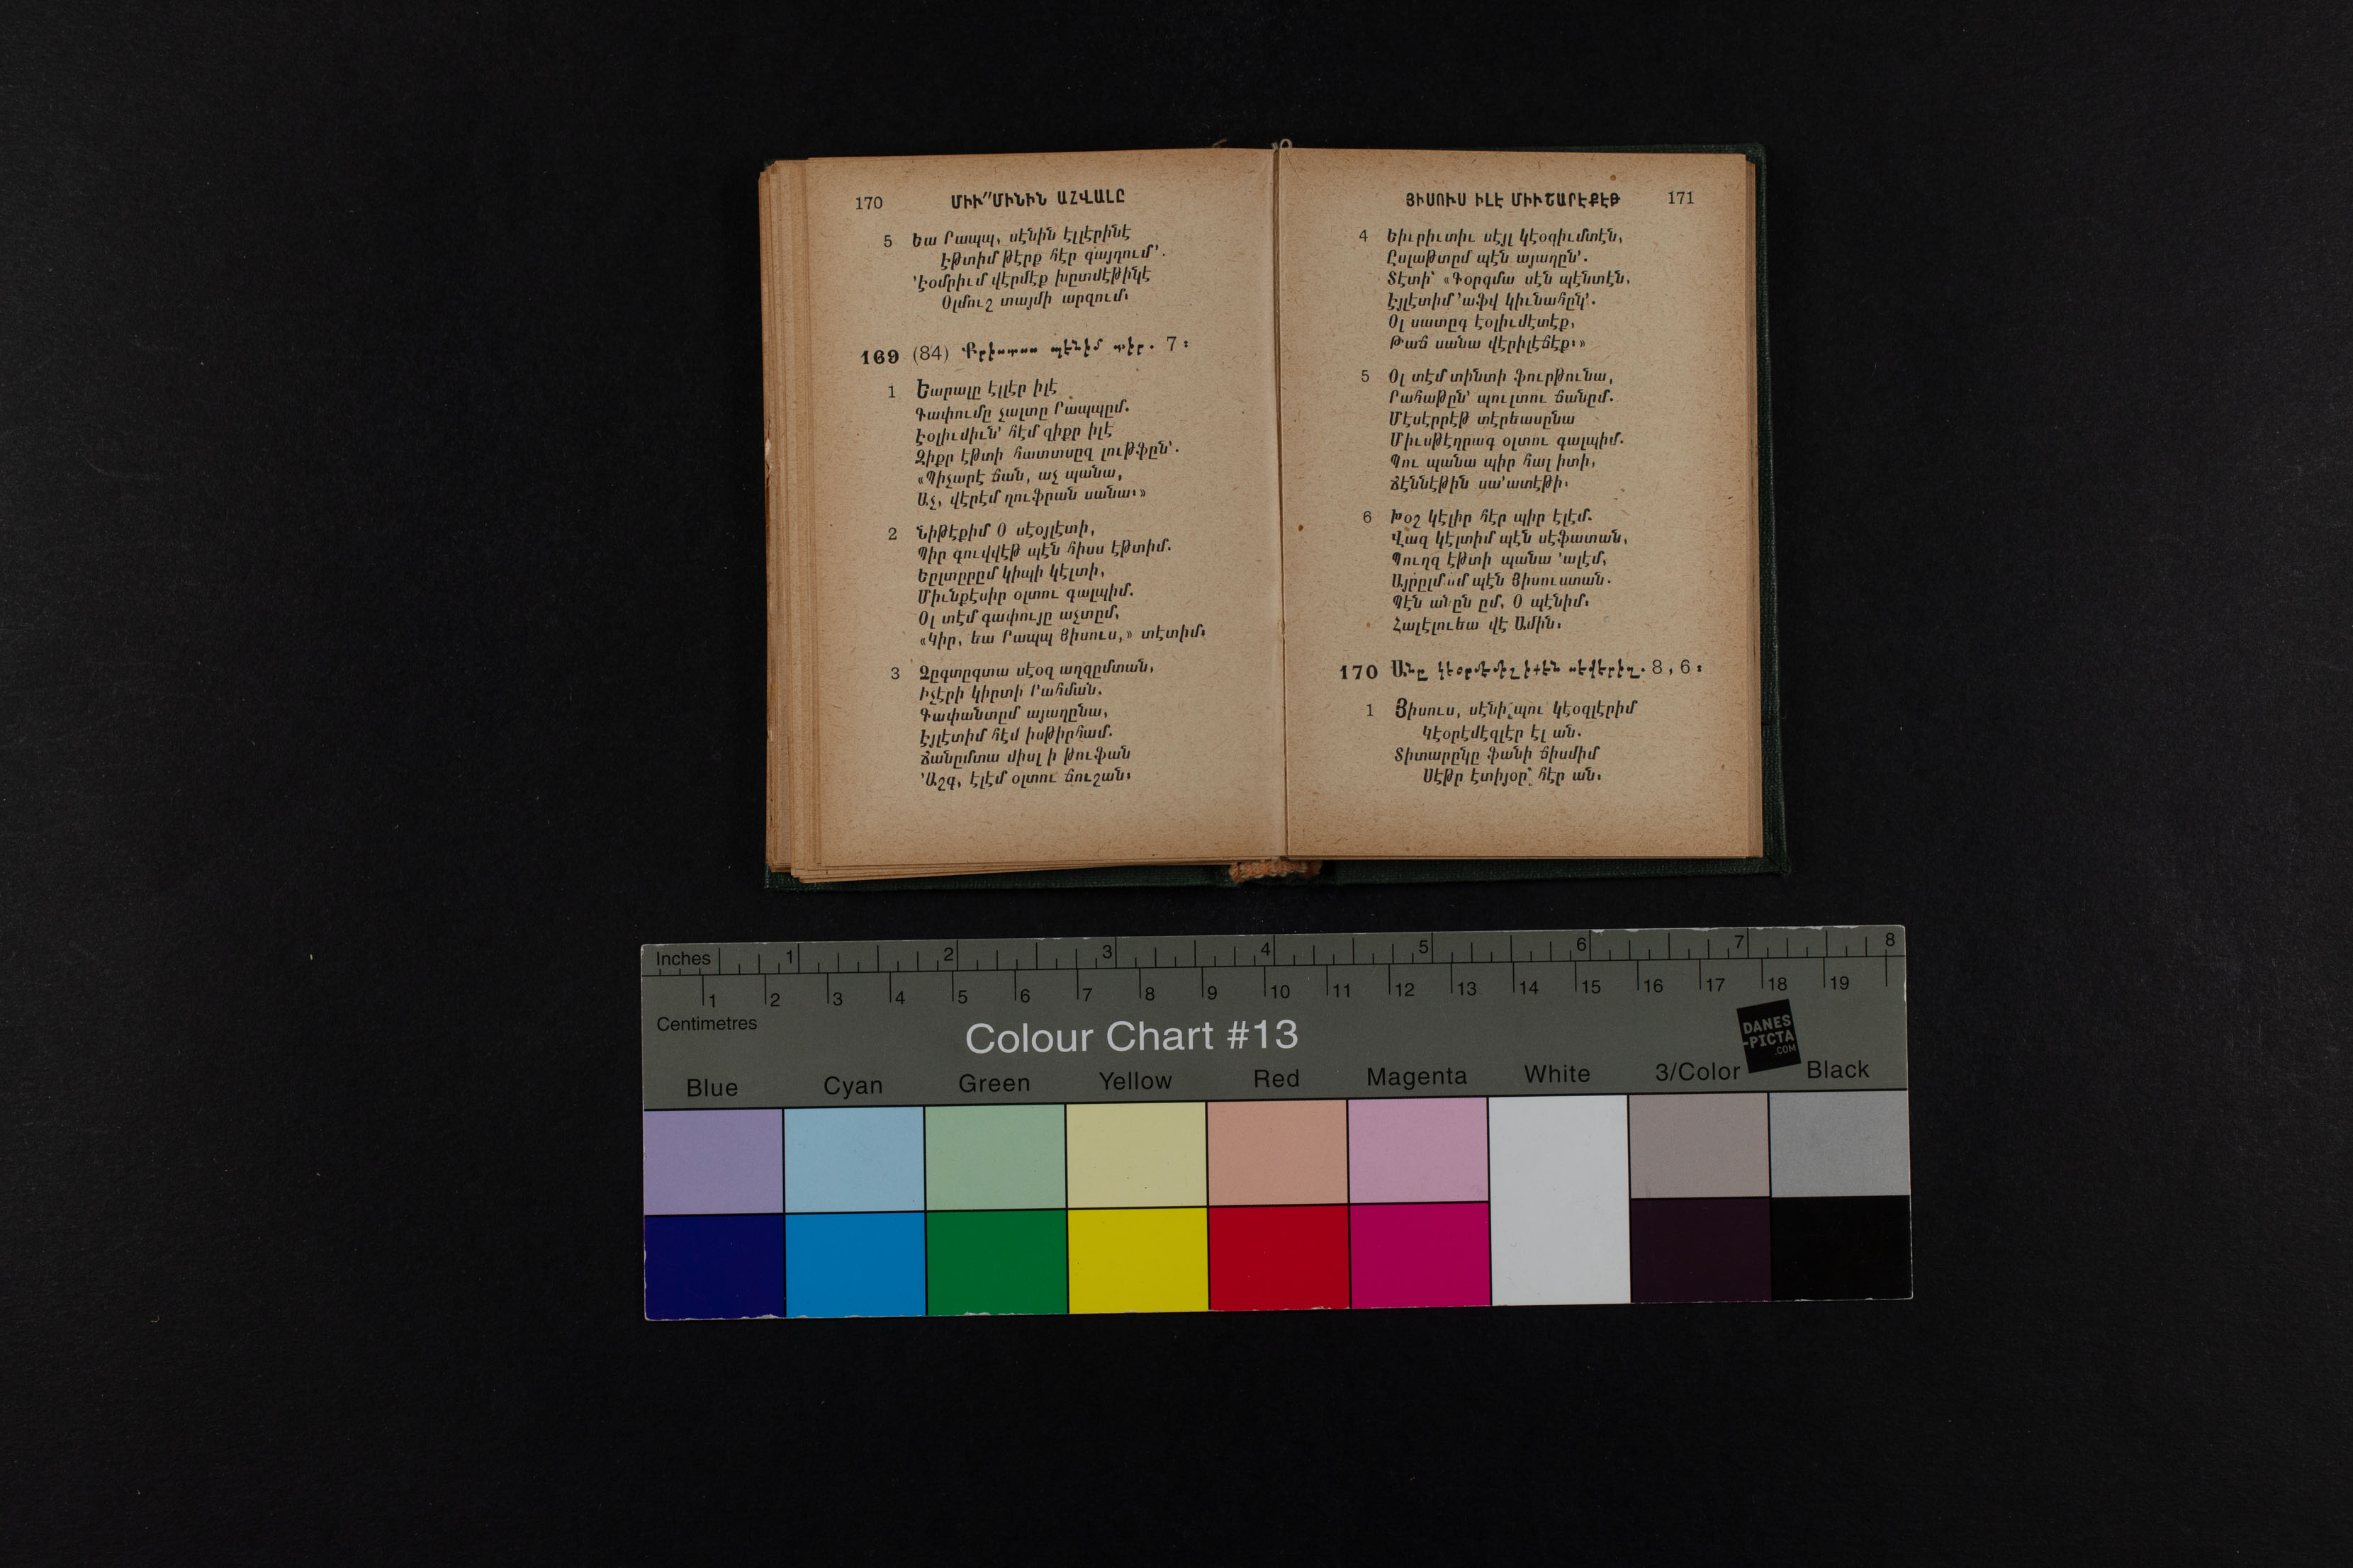 170 ՄԻՒ՚՚ՄԻՆԻՆ ԱՀՎԱԼԸ
5 Եա Րապպ, սէնին էլլէրինէ
Էթտիմ թէրք հէր գայղում՚.
՚Էօմրիւմ վէրմէք խըտմէթինէ
Օլմուշ տայմի արզում։
169 (84) Քրիստոս պէնիմ տիր. 7։
1 Եարալը էլլէր իլէ
Գափումը չալտը Րապպըմ.
Էօլիւմիւն՚ հէմ զիքր իլէ
Զիքր էթտի հատտսըզ լութֆըն՚.
«Պիչարէ ճան, աչ պանա,
Աչ, վէրէմ ղուֆրան սանա։»
2 Նիթէքիմ Օ սէօյլէտի,
Պիր գուվվէթ պէն հիսս էթտիմ.
Եըլտըրըմ կիպի կէլտի,
Միւնքէսիր օլտու գալպիմ.
Օլ տէմ գափույը աչտըմ,
«Կիր, եա Րապպ Յիսուս,» տէտիմ։
3 Զըգտըգտա սէօզ աղզըմտան,
Իչէրի կիրտի Րահման.
Գափանտըմ այաղընա,
Էյլէտիմ հէմ իսթիրհամ.
Ճանըմտա միսլ ի թուֆան
՚Աշգ, էլէմ օլտու ճուշան։
ՅԻՍՈՒՍ ԻԼԷ ՄԻՒՇԱՐԷՔԷԹ 171
4 Եիւրիւտիւ սէյլ կէօզիւմտէն,
Ըսլաթտըմ պէն այաղըն՚.
Տէտի՝ «Գօրգմա սէն պէնտէն,
Էյլէտիմ ՚աֆվ կիւնահըն՚.
Օլ սատըգ էօլիւմէտէք,
Թաճ սանա վէրիլէճէք։»
5 Օլ տէմ տինտի ֆուրթունա,
Րահաթըն՚ պուլտու ճանըմ.
Մէսէրրէթ տէրեասընա
Միւսթէղրագ օլտու գալպիմ.
Պու պանա պիր հալ իտի,
Ճէննէթին սա՚ատէթի։
6 Խօշ կէլիր հէր պիր էլէմ.
Վազ կէլտիմ պէն սէֆատան,
Պուղզ էթտի պանա ՚ալէմ,
Այրըլմամ պէն Յիսուստան.
Պէն անըն ըմ, Օ պէնիմ։
Հալէլուեա վէ Ամին։
170 Անը կէօրմէմիշ իքէն սէվէրիզ. 8, 6։
1 Յիսուս, սէնի պու կէօզլէրիմ
Կէօրէմէզլէր էլ ան.
Տիտարընը ֆանի ճիսմիմ
Սէթր էտիյօր՝ հէր ան։
Inches 1 2 3 4 5 6 7 8
1 2 3 4 5 6 7 8 9 10 11 12 13 14 15 16 17 18 19
Centimetres
Colour Chart #13
DANES
-PICTA
.COM
Blue Cyan Green Yellow Red Magenta White 3/Color Black